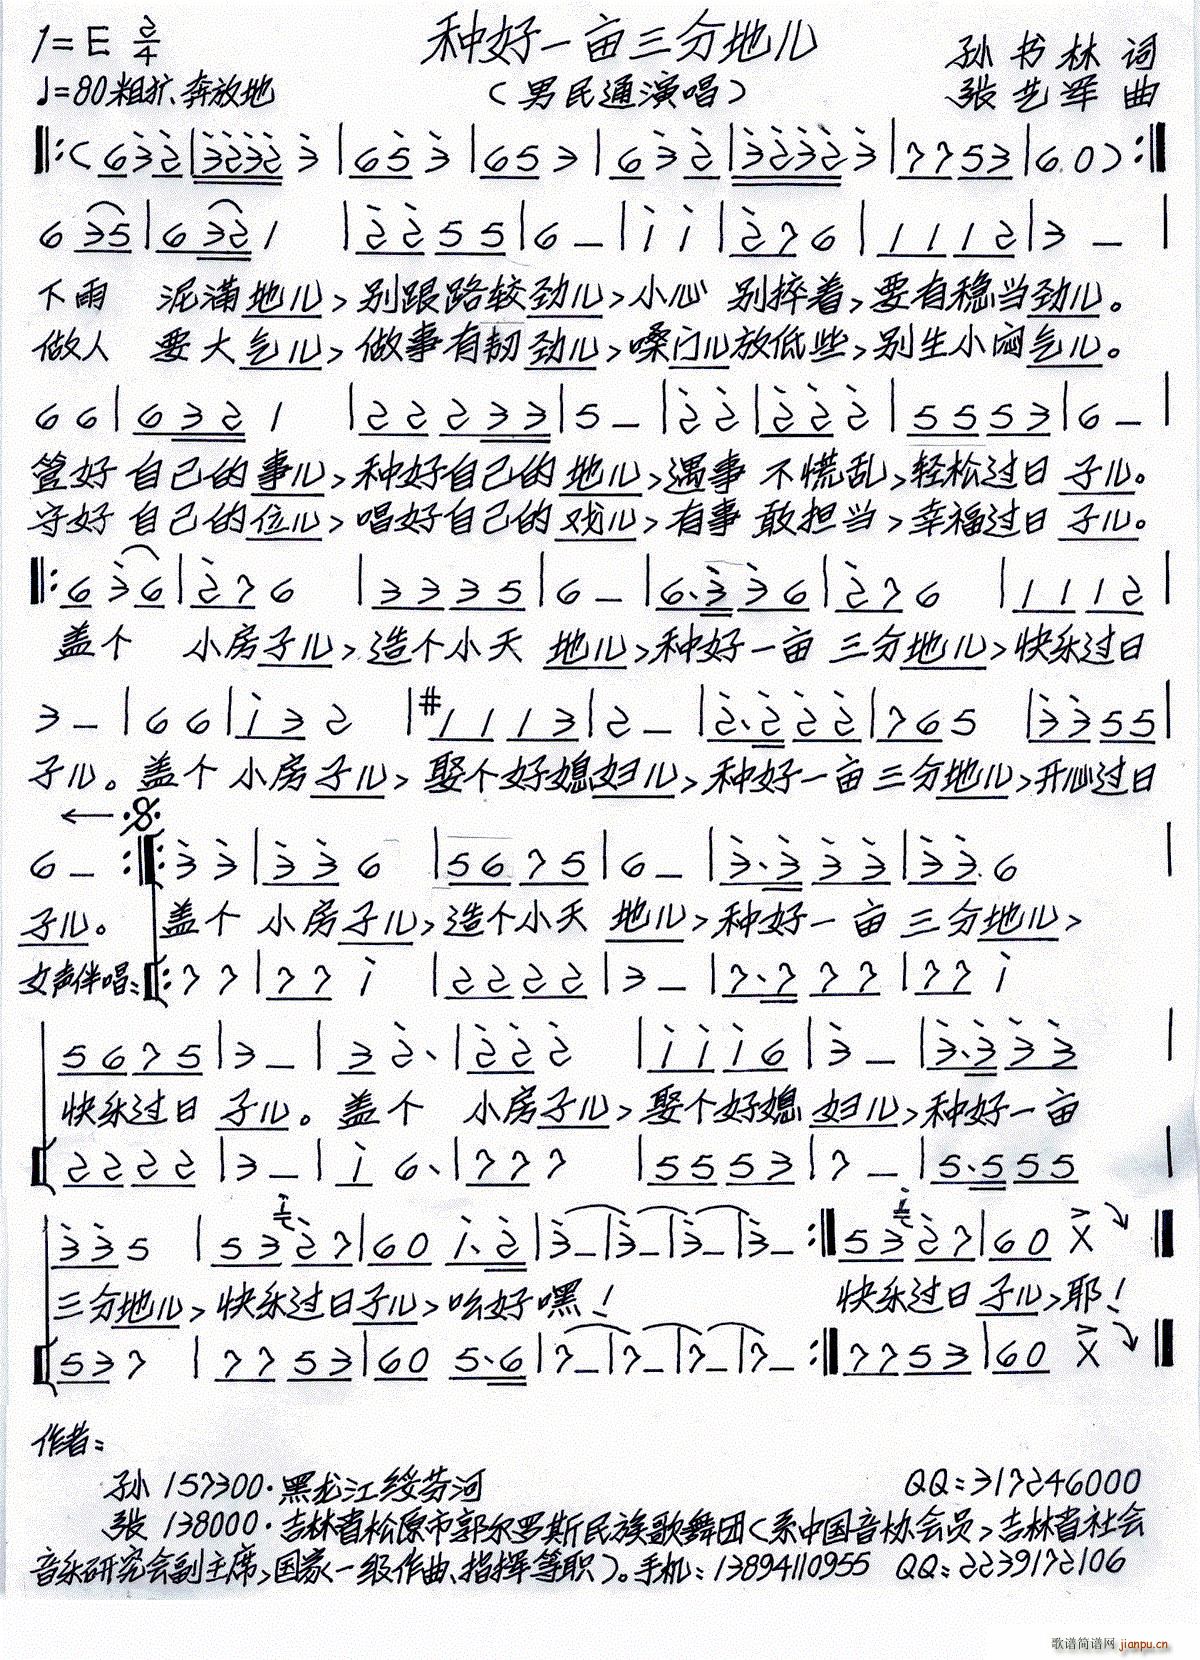 1=E 2/4 种好一亩三分地儿 孙书林 词
♩=80 粗犷、奔放地 (男民通演唱) 张艺军 曲
‖:( 6 3 2 | 3 2 3 2 3 | 6 5 3 | 6 5 3 | 6 3 2 | 3 2 3 2 3 | 7 7 5 3 | 6 0 ) :‖
6 3 5 | 6 3 2 1 | 2 2 5 5 | 6 - | 1 1 | 2 7 6 | 1 1 1 2 | 3 - |
下雨 泥满地儿,别跟路较劲儿,小心 别摔着,要有稳当劲儿。
做人 要大气儿,做事有韧劲儿,嗓门儿放低些,别生小闷气儿。
6 6 | 6 3 2 1 | 2 2 2 3 3 | 5 - | 2 2 | 2 2 2 | 5 5 5 3 | 6 - |
管好 自己的事儿,种好自己的地儿,遇事 不慌乱,轻松过日子儿。
守好 自己的位儿,唱好自己的戏儿,有事 敢担当,幸福过日子儿。
‖: 6 3 6 | 2 7 6 | 3 3 3 5 | 6 - | 6. 3 3 6 | 2 7 6 | 1 1 1 2 |
盖个 小房子儿,造个小天地儿,种好一亩 三分地儿,快乐过日
3 - | 6 6 | 1 3 2 | #1 1 1 3 | 2 - | 2. 2 2 2 | 7 6 5 | 3 3 5 5 |
子儿。盖个 小房子儿,娶个好媳妇儿,种好一亩 三分地儿,开心过日
6 - :‖: 3 3 | 3 3 6 | 5 6 7 5 | 6 - | 3. 3 3 3 | 3 3. 6 |
子儿。 盖个 小房子儿,造个小天地儿,种好一亩 三分地儿,
女声伴唱: ‖: 7 7 | 7 7 1 | 2 2 2 2 | 3 - | 7. 7 7 7 | 7 7 1
5 6 7 5 | 3 - | 3 2. | 2 2 2 | 1 1 1 6 | 3 - | 3. 3 3 3 |
快乐过日子儿。盖个 小房子儿,娶个好媳妇儿,种好一亩
2 2 2 2 | 3 - | 1 6. | 7 7 7 | 5 5 5 3 | 7 - | 5. 5 5 5 |
3 3 5 | 5 3 2 7 | 6 0 1. 2 | 3 - | 3 - | 3 - | 3 - :‖ 5 3 2 7 | 6 0 X ‖
三分地儿,快乐过日子儿,哈好嘿! 快乐过日子儿,耶!
5 3 7 | 7 7 5 3 | 6 0 5. 6 | 7 - | 7 - | 7 - | 7 - :‖ 7 7 5 3 | 6 0 X ‖
作者:
孙 157300·黑龙江绥芬河 QQ:317246000
张 138000·吉林省松原市郭尔罗斯民族歌舞团(系中国音协会员,吉林省社会
音乐研究会副主席,国家一级作曲、指挥等职)。手机:13894110955 QQ:2239172106
歌谱简谱网 jianpu.cn